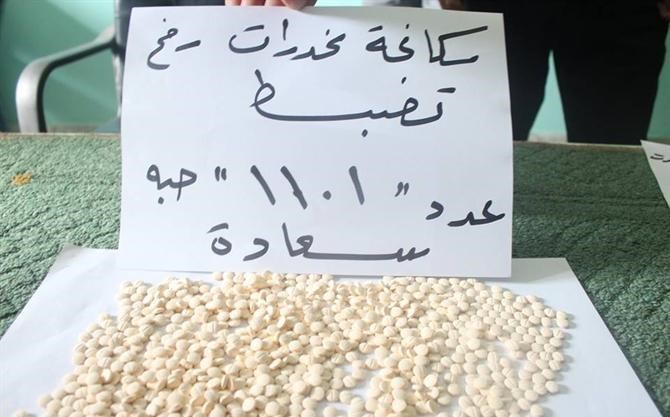 مكافحة مخدرات رفح
تضبط
عدد "١١٠١" حبه
سعادة